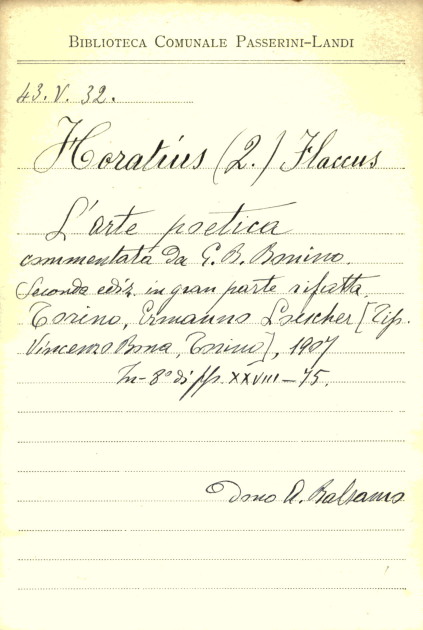 BIBLIOTECA COMUNALE PASSERINI-LANDI
43. V. 32.
Horatius (2.) Flaccus
L'arte poetica
commentata da G. B. Bonino.
Seconda ediz. in gran parte rifatta.
Torino, Ermanno Loescher [Tip.
Vincenzo Bona, Torino], 1907
In-8° di pp. XXVIII-75.
Dono A. Balsamo